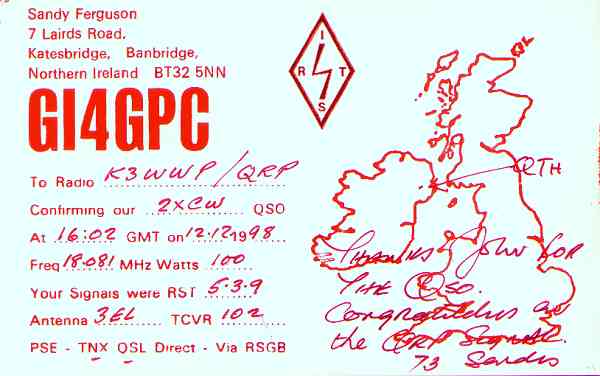 Sandy Ferguson
7 Lairds Road.
Katesbridge, Banbridge,
Northern Ireland BT32 5NN
GI4GPC
I
R T
S
To Radio K3WWP/QRP
Confirming our 2XCW QSO
At 16:02 GMT on 12.12 1998
Freq 18.081 MHz Watts 100
Your Signals were RST 5.3.9
Antenna 3EL TCVR 102
PSE - TNX QSL Direct - Via RSGB
QTH
Thanks John for
the QSO.
Congratulations on
the QRP Signal.
73 Sandy